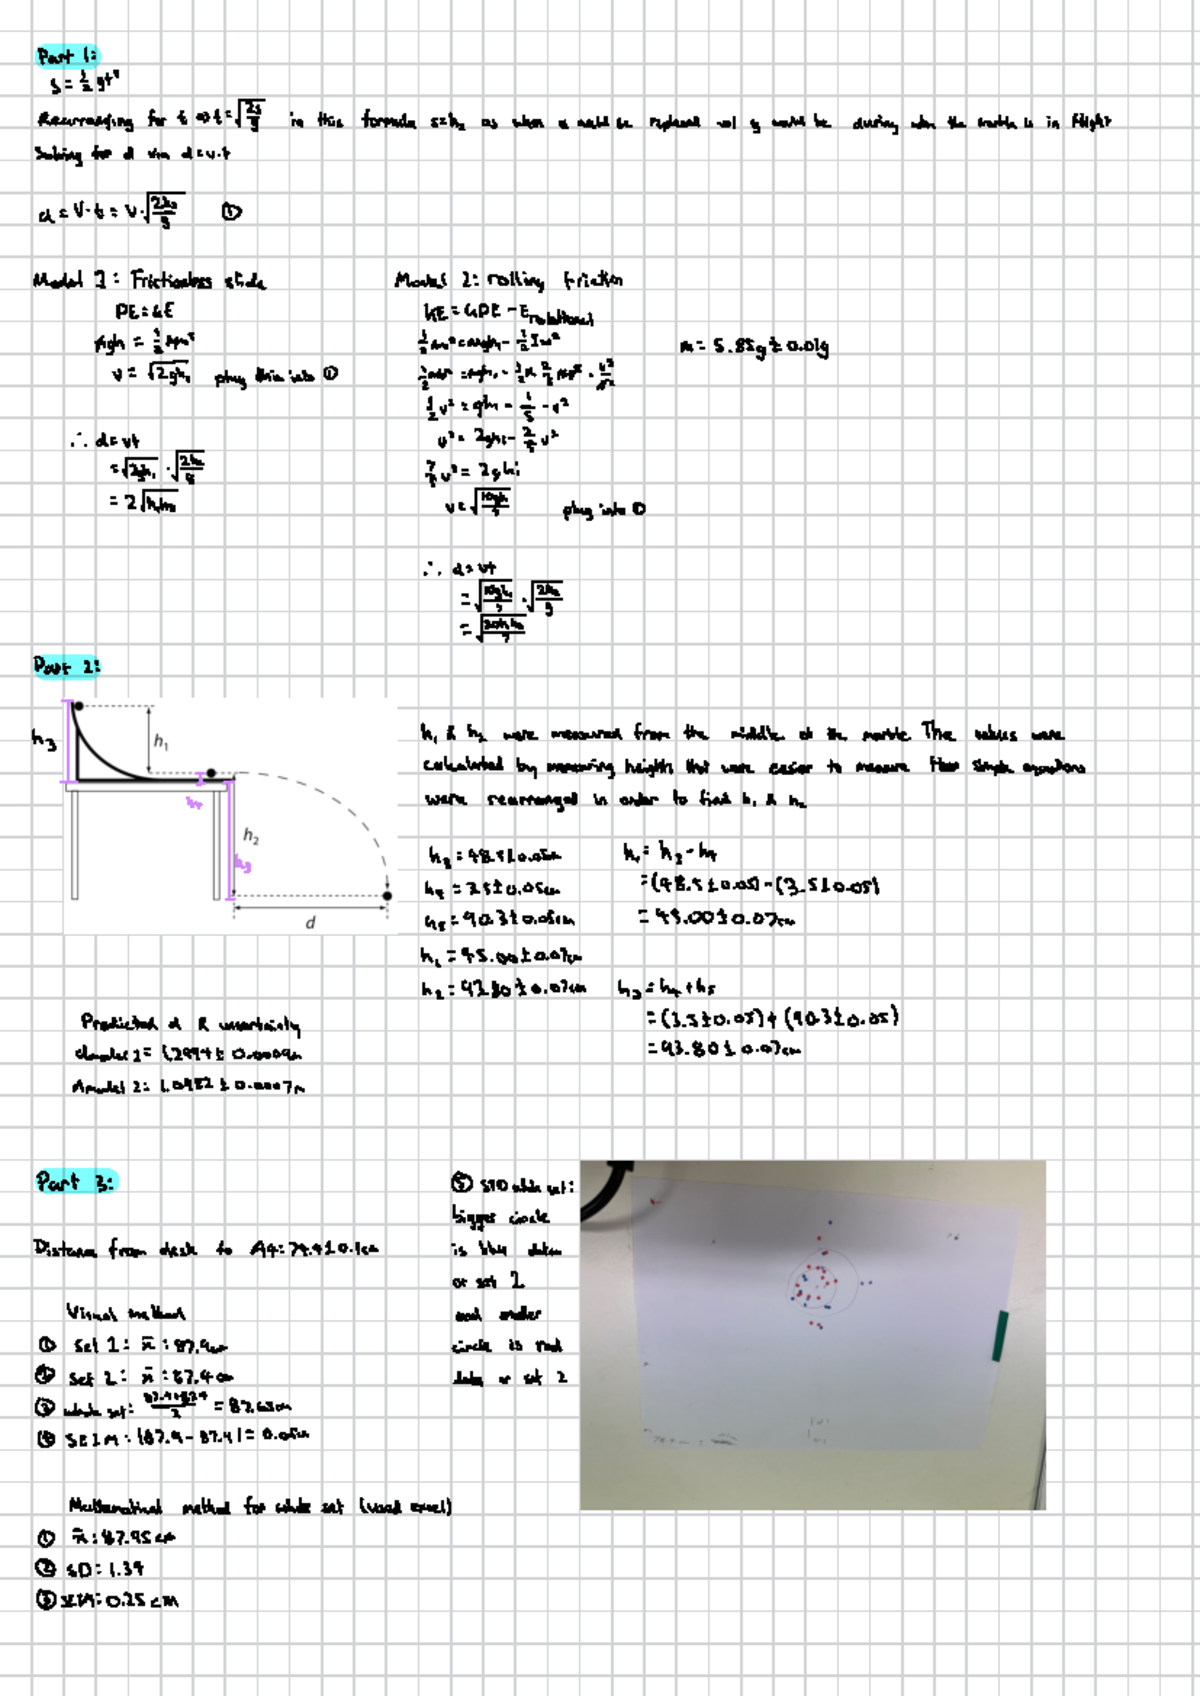 Part 1:
s = ½ gt²
Rearranging for t ⇒ t = √(2s/g) in this formula s=h₂ as when would be replaced g would be during when the marble is in flight
Solving for d via d=v.t
d = V·t = v·√(2h₂/g) ①
Model 1: Frictionless slide
PE=KE
mgh = ½mv²
v = √(2gh₁) plug this into ①
∴ d=vt
= √(2gh₁) · √(2h₂/g)
= 2√(h₁h₂)
Model 2: rolling friction
KE = GPE - E rotational
½mv² = mgh₁ - ½Iω²
½mv² = mgh₁ - ½ × ⅖ mr² · v²/r²
½v² = gh₁ - ⅕ v²
v² = 2gh₁ - ⅖v²
7/5 v² = 2gh₁
v = √(10gh₁/7) plug into ①
∴ d=vt
= √(10gh₁/7) · √(2h₂/g)
= √(20h₁h₂/7)
m = 5.85g ± 0.01g
Part 2:
h₃
h₁
h₂
d
h₁ & h₂ were measured from the middle of the marble. The values were
calculated by measuring heights that were easier to measure then simple equations
were rearranged in order to find h₁ & h₂
h₃ = 48.5±0.05cm
h₄ = 3.5±0.05cm
h₅ = 90.3±0.05cm
h₁ = 45.00±0.07cm
h₂ = 93.80±0.07cm
h₁ = h₃-h₄
=(48.5±0.05)-(3.5±0.05)
= 45.00±0.07cm
h₂ = h₄+h₅
=(3.5±0.05)+(90.3±0.05)
=93.80±0.07cm
Predicted d & uncertainty
dmodel 1 = 1.2994 ± 0.0009m
dmodel 2: 1.0982 ± 0.0007m
Part 3:
Distance from desk to A4: 74.4±0.1cm
Visual method
① set 1: x̄: 87.9cm
② set 2: x̄: 87.4cm
③ whole set: = 87.65cm
④ = 0.05cm
⑤ STD whole set:
bigger circle
is blue data
or set 1
and smaller
circle is red
data or set 2
Mathematical method for whole set (used excel)
① x̄: 87.95cm
② SD: 1.39
③ SEM: 0.25cm